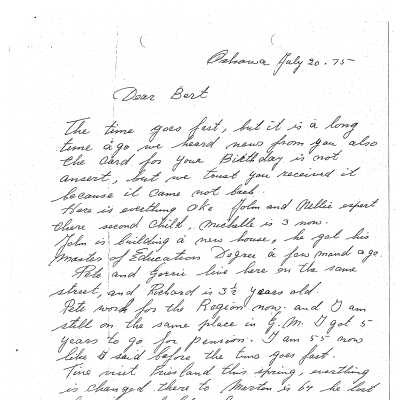 Oshawa July 20. 75
Dear Bert
The time goes fast, but it is a long
time ago we heard news from you, also
the card for your Birthday is not
ansert, but we trust you received it
because it came not back.
Here is everthing oke John and Nellie expert
there second child, Michelle is 3 now.
John is building a new house, he got his
Master of Education Degree a few mand ago.
Pete and Gerrie live here on the same
street, and Richard is 3½ years old.
Pete work for the Region now. and I am
still on the same place in G.M. I got 5
years to go for pension. I am 55 now
like I said before the time goes fast.
Tine visit Friesland this spring, everthing
is changed there to Marten is 64 he lost